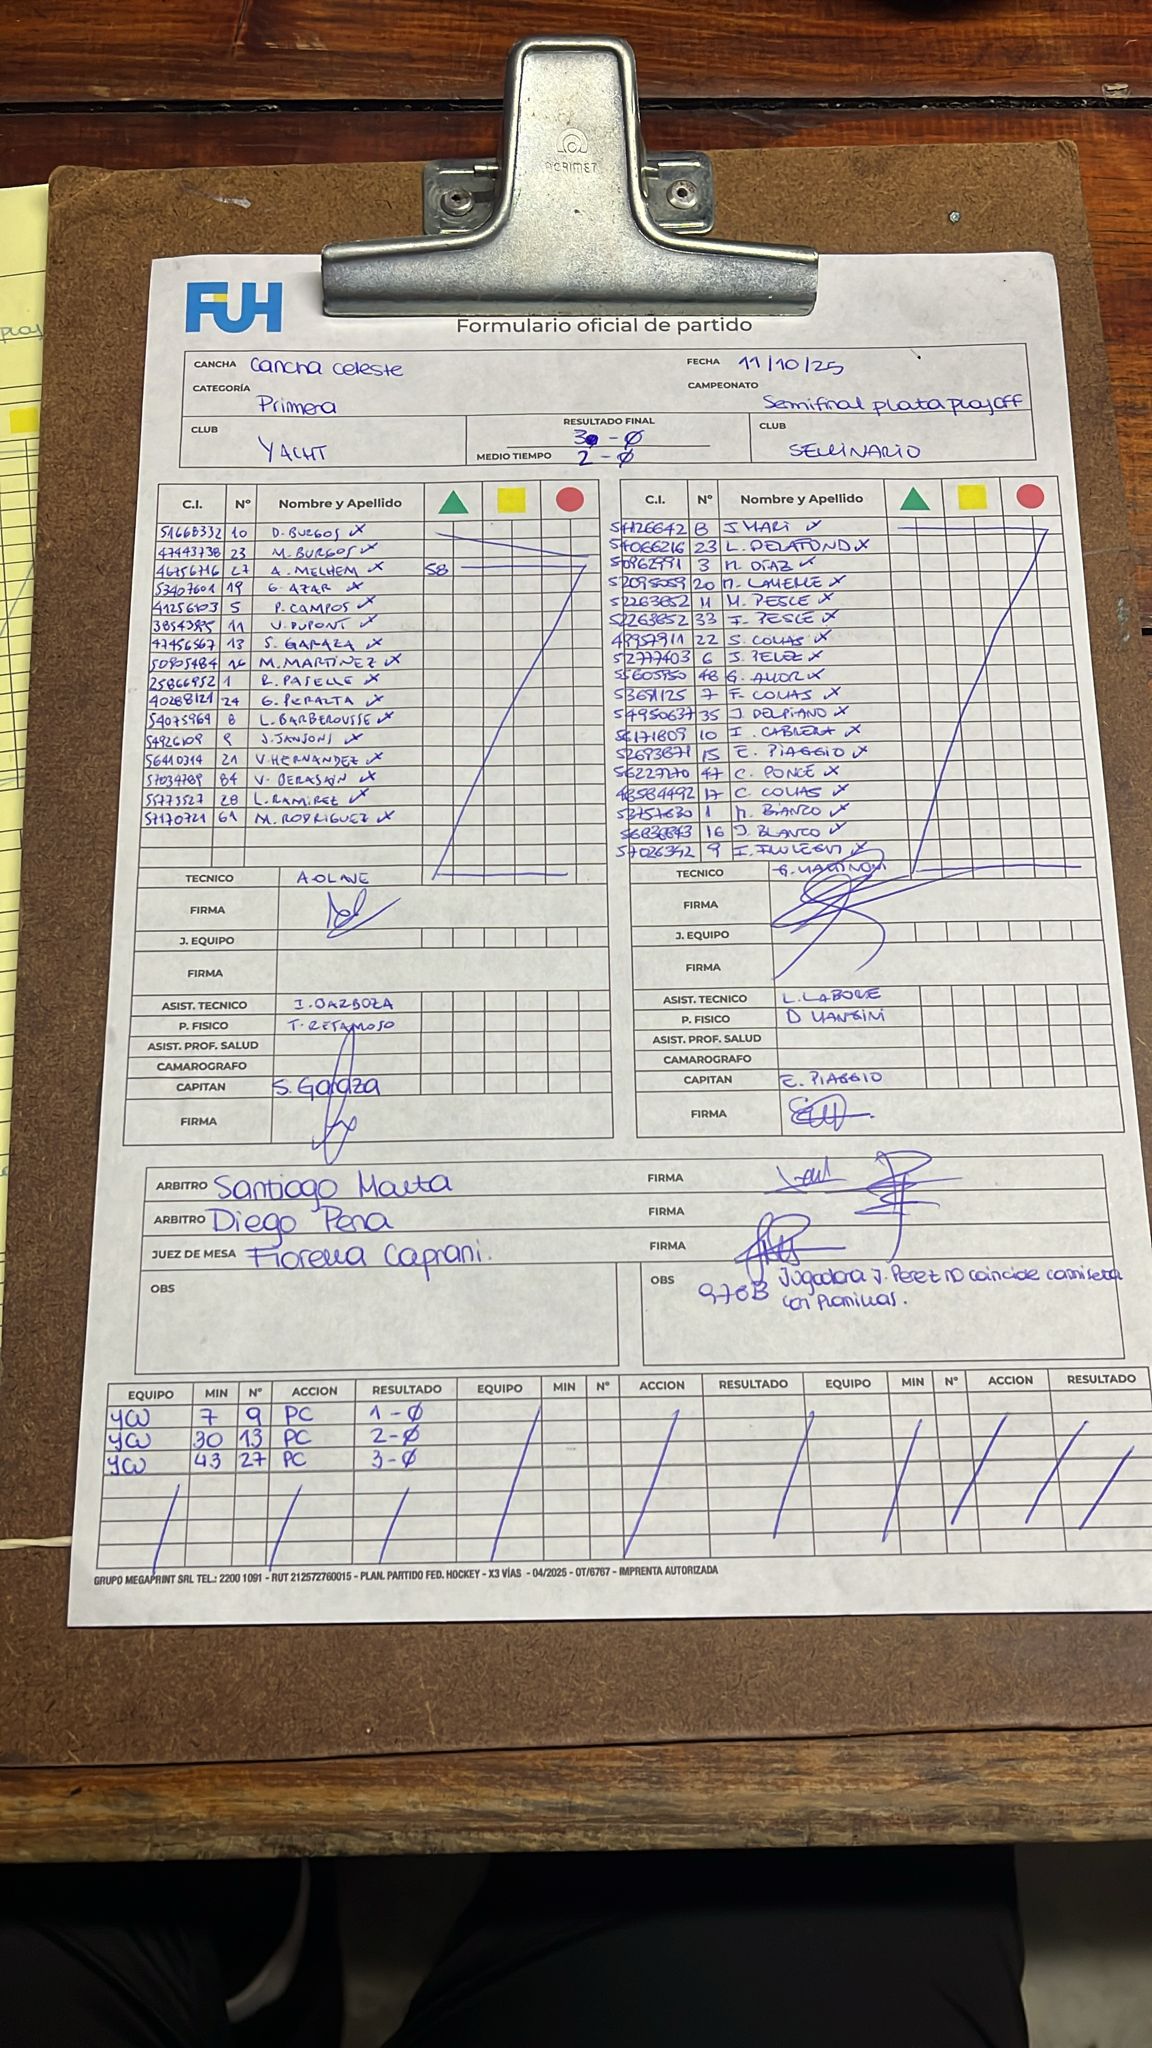 ACRIMET
FUH
Formulario oficial de partido
CANCHA Cancha celeste FECHA 11/10/25
CATEGORÍA Primera CAMPEONATO Semifinal plata playoff
CLUB YACHT RESULTADO FINAL 3 - 0 CLUB SEMINARIO
MEDIO TIEMPO 2 - 0
C.I. Nº Nombre y Apellido
10 D. BURGOS
47443738 23 M. BURGOS
46756716 27 A. MELHEM 58
53407601 19 G. AZAR
41256103 5 P. CAMPOS
11 V. DUPONT
47456567 13 S. GARAZA
50905484 M. MARTÍNEZ
25866952 1 R. PASELLE
40288121 24 G. PERALTA
54075969 8 L. BARBEROUSSE
54926109 9 J. JANSONS
56410314 21 V. HERNANDEZ
57034789 84 V. BERASAIN
55773527 28 L. RAMIREZ
57170721 61 M. RODRIGUEZ
TECNICO A. OLAVE
FIRMA
J. EQUIPO
FIRMA
ASIST. TECNICO I. BARBOZA
P. FISICO T. RETAMOSO
ASIST. PROF. SALUD
CAMAROGRAFO
CAPITAN S. Garaza
FIRMA
C.I. Nº Nombre y Apellido
54126642 J. MARI
54066216 23 L. DELAFOND
50962991 3 M. DÍAZ
20
52263852 11 M. PESCE
52263652 33 F. PESCE
22 S. COLLAS
52777403 6
55605950 48 G. AMOR
53691125 7 F. COLLAS
54950637 35 J. DELPIANO
56171809 10 I. CABRERA
52693871 15 E. PIAGGIO
56227270 47 C. PONCE
48584492 17 C. COLLAS
53757630 1 M. BIANCO
16 J. BLANCO
57026342 9
TECNICO G. MARTINONI
FIRMA
J. EQUIPO
FIRMA
ASIST. TECNICO L. LABORE
P. FISICO D MANSINI
ASIST. PROF. SALUD
CAMAROGRAFO
CAPITAN E. PIAGGIO
FIRMA
ARBITRO Santiago Maeta FIRMA
ARBITRO Diego Pena FIRMA
JUEZ DE MESA Fiorella Caprani. FIRMA
OBS
OBS Jugadora J. Perez no coincide camiseta
con planillas.
EQUIPO MIN Nº ACCION RESULTADO EQUIPO MIN Nº ACCION RESULTADO EQUIPO MIN Nº ACCION RESULTADO
YCU 7 9 PC 1-0
YCU 30 13 PC 2-0
YCU 43 27 PC 3-0
GRUPO MEGAPRINT SRL TEL.: 2200 1091 - RUT 212572760015 - PLAN. PARTIDO FED. HOCKEY - X3 VÍAS - 04/2025 - OT/6767 - IMPRENTA AUTORIZADA